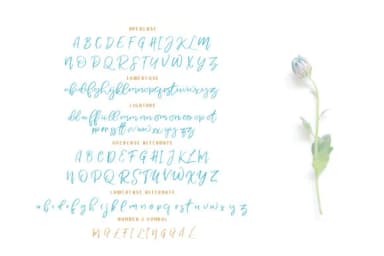 UPPERCASE
A B C D E F G H I J K L M
N O P Q R S T U V W X Y Z
LOWERCASE
a b c d e f g h i j k l m n o p q r s t u v w x y z
LIGATURE
UPPERCASE ALTERNATE
A B C D E F G H I J K L M
N O P Q R S T U V W X Y Z
LOWERCASE ALTERNATE
a b c d e f g h i j k l m n o p q r s t u v w x y z
NUMBER & SYMBOL